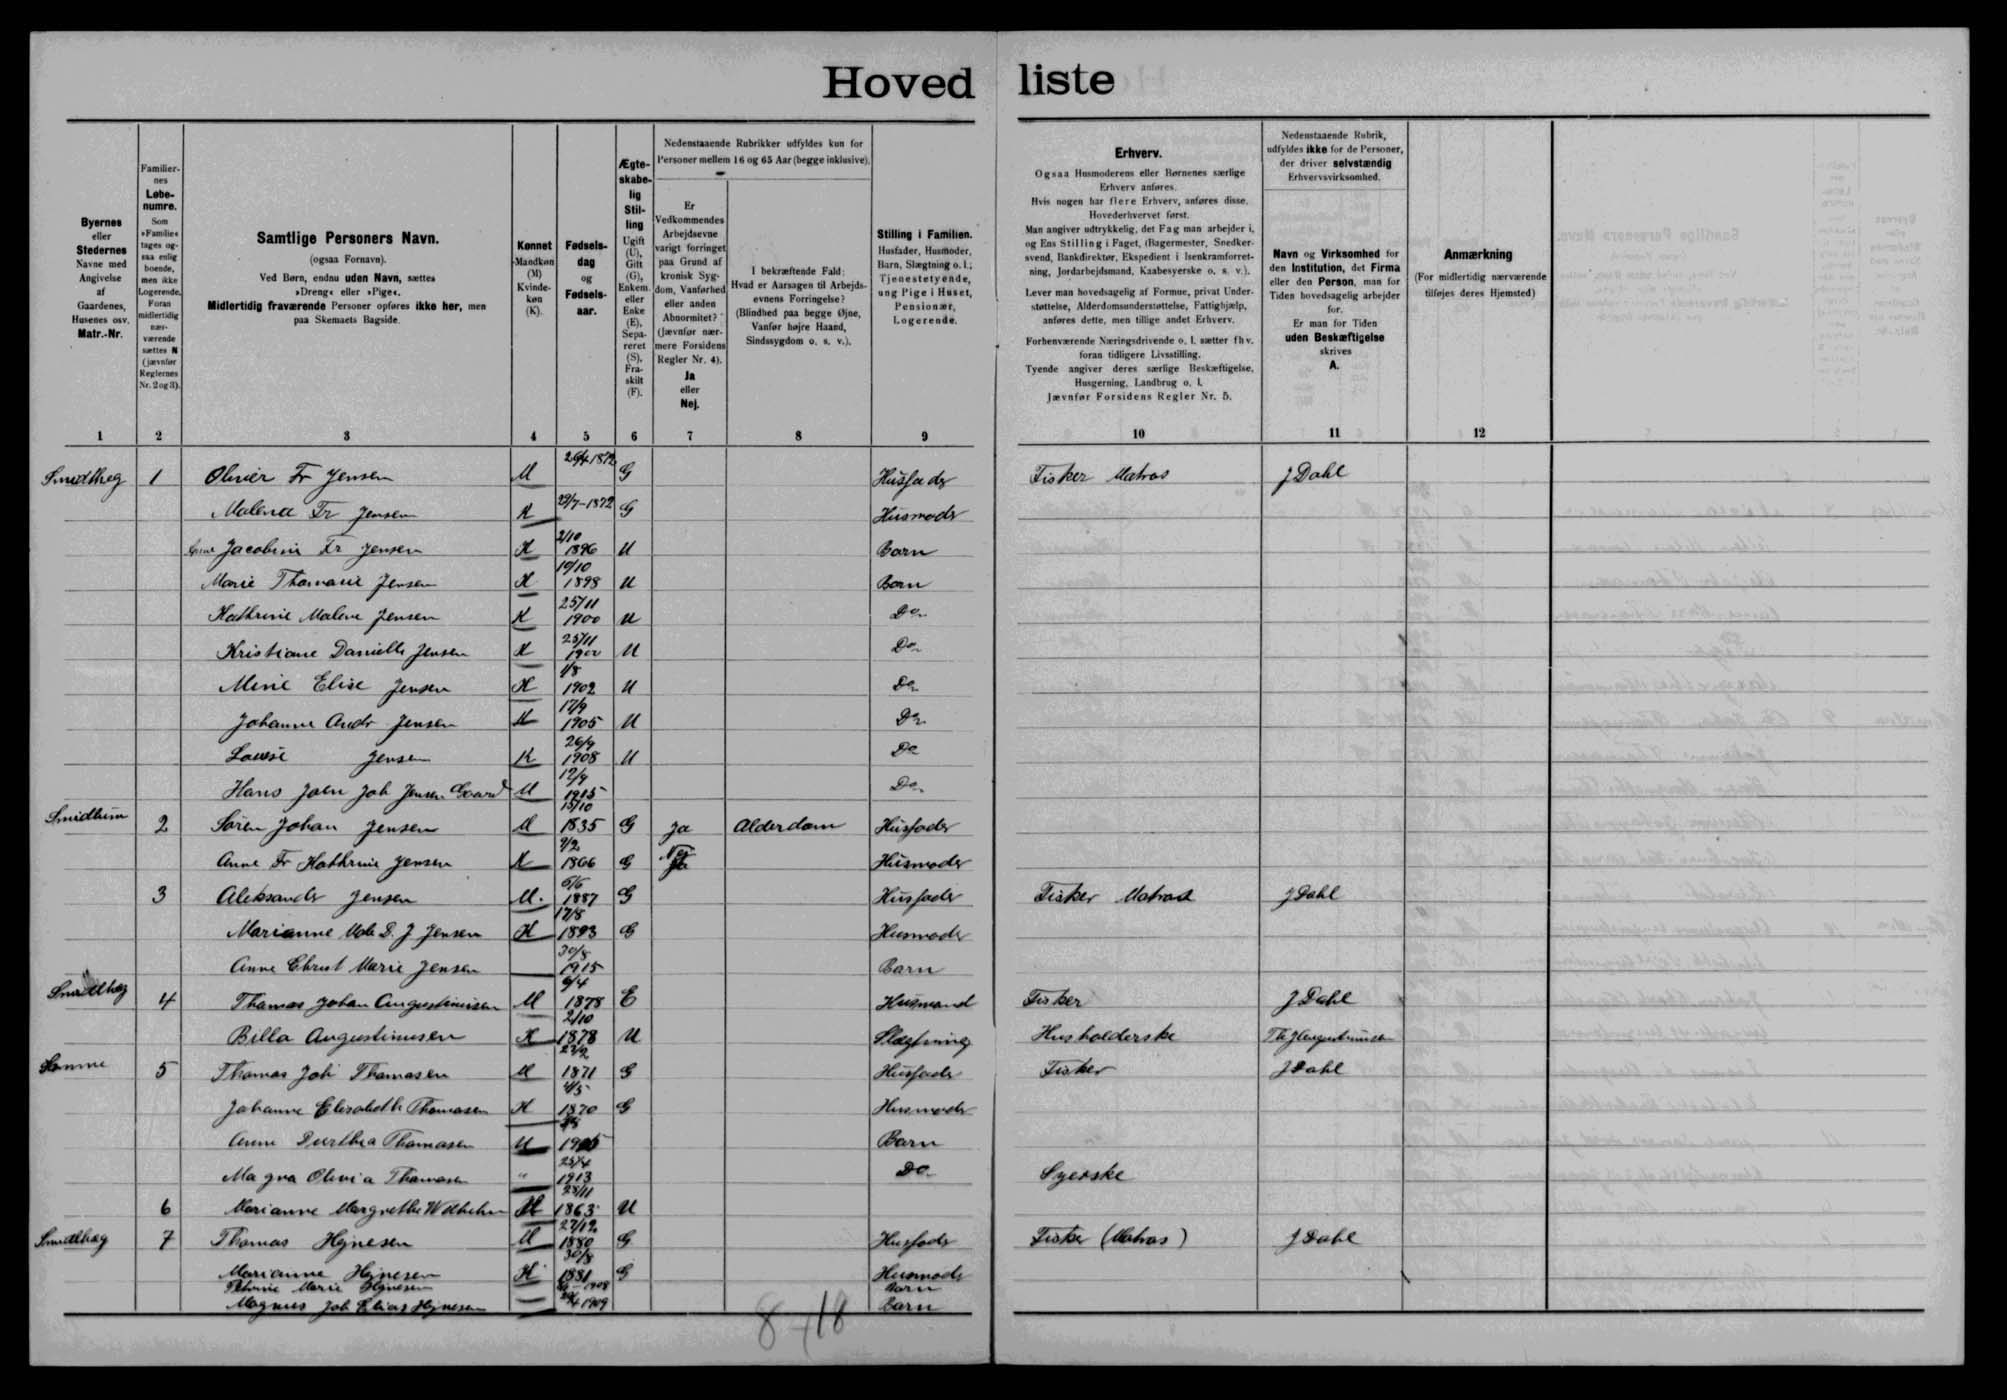 Hoved liste
Byernes
eller
Stedernes
Navne med
Angivelse
af
Gaardenes,
Husenes osv.
Matr.-Nr.
Familier-
nes
Løbe-
numre.
Som
»Familie«
tages og-
saa enlig
boende,
men ikke
Logerende.
Foran
midlertidig
nær-
værende
sættes N
(jævnfør
Reglernes
Nr. 2 og 3).
Samtlige Personers Navn.
(ogsaa Fornavn).
Ved Børn, endnu uden Navn, sættes
»Dreng« eller »Pige«.
Midlertidig fraværende Personer opføres ikke her, men
paa Skemaets Bagside.
Kønnet
Mandkøn
(M)
Kvinde-
køn
(K).
Fødsels-
dag
og
Fødsels-
aar.
Ægte-
skabe-
lig
Stil-
ling
Ugift
(U),
Gift
(G),
Enkem.
eller
Enke
(E),
Sepa-
reret
(S),
Fra-
skilt
(F).
Nedenstaaende Rubrikker udfyldes kun for
Personer mellem 16 og 65 Aar (begge inklusive).
Er
Vedkommendes
Arbejdsevne
varigt forringet
paa Grund af
kronisk Syg-
dom, Vanførhed
eller anden
Abnormitet?
(Jævnfør nær-
mere Forsidens
Regler Nr. 4).
Ja
eller
Nej.
I bekræftende Fald:
Hvad er Aarsagen til Arbejds-
evnens Forringelse?
(Blindhed paa begge Øjne,
Vanfør højre Haand,
Sindssygdom o. s. v.).
Stilling i Familien.
Husfader, Husmoder,
Barn, Slægtning o. l.;
Tjenestetyende,
ung Pige i Huset,
Pensionær,
Logerende.
Erhverv.
Ogsaa Husmoderens eller Børnenes særlige
Erhverv anføres.
Hvis nogen har flere Erhverv, anføres disse.
Hovederhvervet først.
Man angiver udtrykkelig, det Fag man arbejder i,
og Ens Stilling i Faget, (Bagermester, Snedker-
svend, Bankdirektør, Ekspedient i Isenkramforret-
ning, Jordarbejdsmand, Kaabesyerske o. s. v.).
Lever man hovedsagelig af Formue, privat Under-
støttelse, Alderdomsunderstøttelse, Fattighjælp,
anføres dette, men tillige andet Erhverv.
Forhenværende Næringsdrivende o. l. sætter fhv.
foran tidligere Livsstilling.
Tyende angiver deres særlige Beskæftigelse,
Husgerning, Landbrug o. l.
Jævnfør Forsidens Regler Nr. 5.
Nedenstaaende Rubrik,
udfyldes ikke for de Personer,
der driver selvstændig
Erhvervsvirksomhed.
Navn og Virksomhed for
den Institution, det Firma
eller den Person, man for
Tiden hovedsagelig arbejder
for.
Er man for Tiden
uden Beskæftigelse
skrives
A.
Anmærkning
(For midlertidig nærværende
tilføjes deres Hjemsted)
1 2 3 4 5 6 7 8 9 10 11 12
1 Olivier Fr Jensen M 1872 G Husfader Fisker Matros J Dahl
Malena Fr Jensen K 29/7-1872 G Husmoder
Anne Jacobine Fr Jensen K 2/10 1896 U Barn
Marie Thomasie Jensen K 10/10 1898 U Barn
Kathrine Malene Jensen K 25/11 1900 U Do
Kristiane Danielle Jensen K 25/11 1900 U Do
Mine Elise Jensen K 1/8 1902 U Do
Johanne Andr Jensen K 17/9 1905 U Do
Louise Jensen K 26/9 1908 U Do
Hans Joen Joh Jensen M 12/9 1915 Do
2 Søren Johan Jensen M 15/10 1835 G Ja Alderdom Husfader
Anne Fr Kathrine Jensen K 9/2 1866 G Nej Husmoder
3 Aleksander Jensen M. 6/6 1887 G Husfader Fisker Matros J Dahl
Marianne Mal. D. J Jensen K 17/8 1893 G Husmoder
Anne Christ Marie Jensen 30/8 1915 Barn
4 Thomas Johan Augustinusen M 9/4 1878 E Husmand Fisker J Dahl
Billa Augustinusen K 2/10 1878 U Slægtning Husholderske Th J Augustinusen
Samme 5 Thomas Joh Thomasen M 23/2 1871 G Husfader Fisker J Dahl
Johanne Elisabeth Thomasen K 4/5 1870 G Husmoder
Anne Durthea Thomasen 1905 Barn
Magna Olivia Thomasen " 25/4 1913 Do Syerske
6 Marianne Margrethe Wilhelm K 28/11 1863 U
7 Thomas Hejnesen M 27/12 1880 G Husfader Fisker (Matros) J Dahl
Marianne Hejnesen K 30/8 1881 G Husmoder
Petrine Marie Hejnesen 1908 Barn
Magnus Joh Elias Hejnesen 1909 Barn
8 + 18